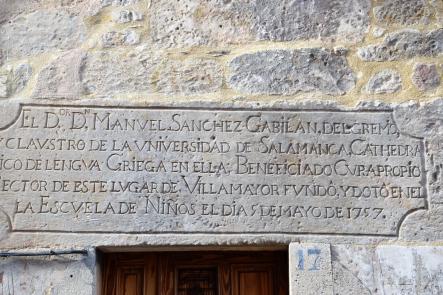 EL D.OR D.N MANUEL SANCHEZ GABILAN, DEL GREMO,
Y CLAVSTRO DE LA VNIVERSIDAD DE SALAMANCA, CATHEDRA
ICO DE LENGVA GRIEGA EN ELLA: BENEFICIADO CVRA PROPIO
RECTOR DE ESTE LUGAR DE VILLAMAYOR FUNDÓ, Y DOTÓ EN EL
LA ESCUELA DE NIÑOS EL DIA 5 DE MAYO DE 1757.
17